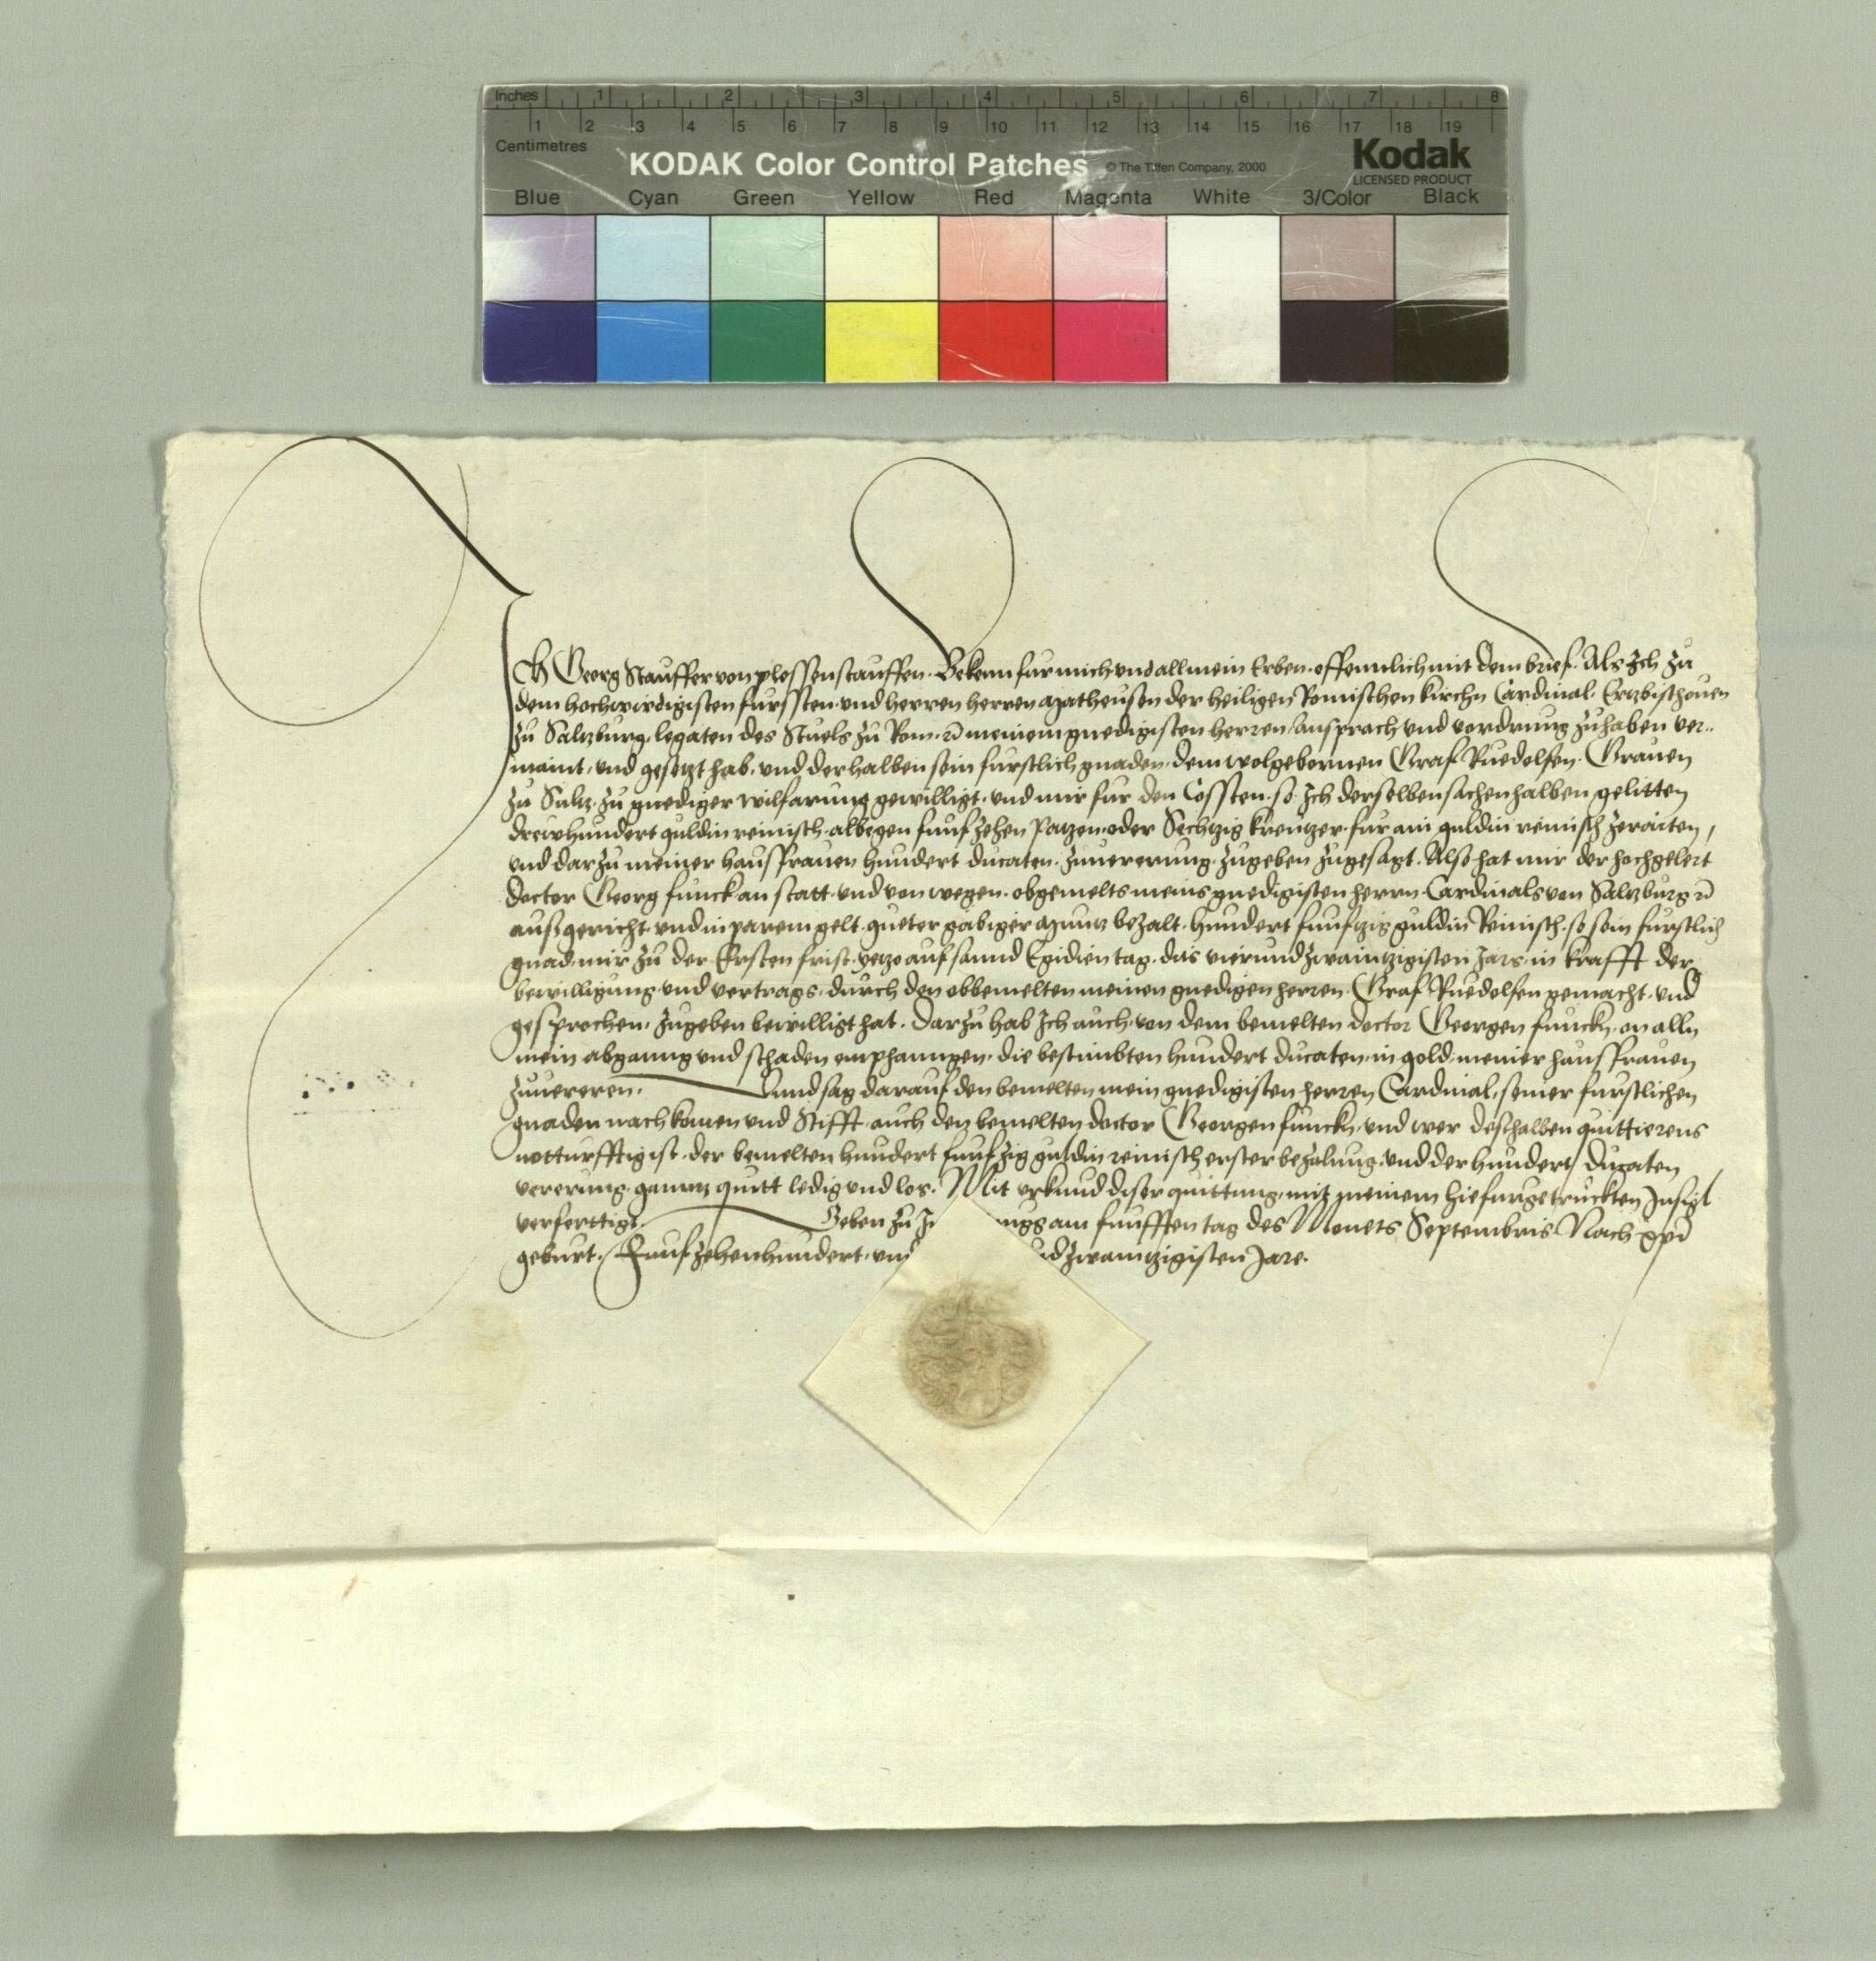 Inches 1 2 3 4 5 6 7 8
1 2 3 4 5 6 7 8 9 10 11 12 13 14 15 16 17 18 19
Centimetres
KODAK Color Control Patches © The Tiffen Company, 2000 Kodak
LICENSED PRODUCT
Blue Cyan Green Yellow Red Magenta White 3/Color Black
Ich Georg Stauffer von plossenstauffen. Bekenn fur mich und all mein Erben. offennlich mit dem brief. Als Ich zu
dem hochwirdigisten furssten. und herren herren Matheusen der heiligen Romischen kirchn Cardinal. Ertzbischouen
zu Saltzburg, legaten des Stuels zu Rom. rc meinem gnedigisten herren, Ansprach und vordrung zuhaben ver..
maint. und gesetzt hab. und derhalben sein furstlich gnaden. dem wolgebornen Graf Ruedolfen. Grauen
zu Sultz. zu gnediger wilfarung gewilligt. und mir fur den Cossten. so Ich derselben sachen halben gelitten
drewhundert guldin reinisch. albegen funfzehen Patzen. oder Sechtzig kreutzer. fur ain guldin reinisch zeraiten,
und darzu meiner hausfrauen hundert ducaten. zuuererung. zugeben zugesagt. Also hat mir der hochgelert
doctor Georg funck an statt. und von wegen. obgemelts meins gnedigisten herrn. Cardinals von Saltzburg rc
ausgericht. und in parem gelt. gueter gabiger Muntz bezalt. hundert funftzig guldin Reinisch. so sein furstlich
gnad. mir zu der Ersten frist. yetzo auf sannd Egidien tag. des vierundzwaintzigisten Jars. in krafft der
bewilligung. und vertrags. durch den obbemelten meinen gnedigen herren. Graf Ruedolfen gemacht. und
gesprochen. zugeben bewilligt hat. Darzu hab Ich auch. von dem bemelten doctor Georgen funckn. on alln
mein abganng und schaden emphanngen. die bestimbten hundert ducaten. in gold. meiner hausfrauen
zuuereren. Unnd sag darauf den bemelten mein gnedigisten herren Cardinal, seiner furstlichen
gnaden nachkomen und Stifft. auch den bemelten doctor Georgen funckn. und wer deshalben quittierens
notturfftig ist. der bemelten hundert funfzig guldin reinisch erster bezalung. und der hundert ducaten
vererung. ganntz quitt ledig und los. Mit urkund diser quittung, mit meinem hiefurgetruckten Insigl
verferttigt. Geben zu In ngs am funfften tag des Monets Septembris Nach xpi
geburt. Funfzehenhundert. und undzwaintzigisten Jare.